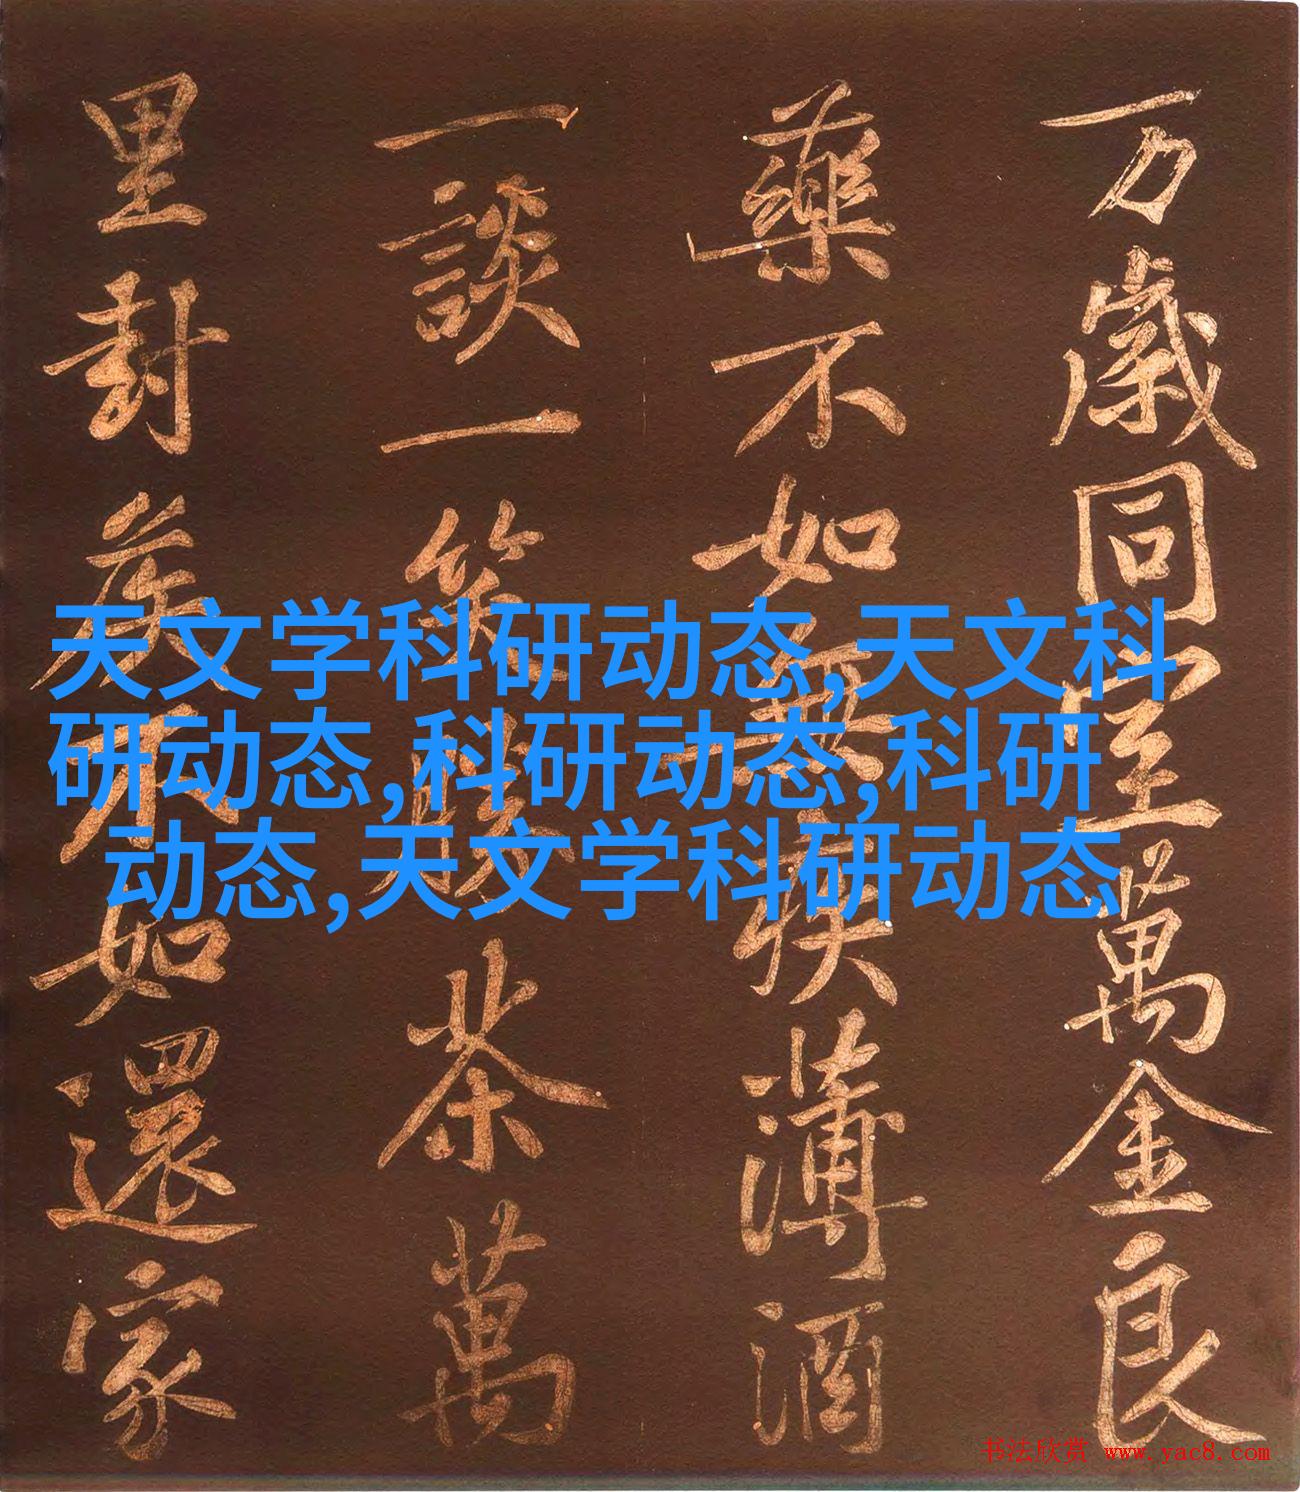 万歲同室萬金良
藥不如無疾薄酒
一談一笑勝茶萬
里封侯不如還家
天文学科研动态,天文科
研动态,科研动态,科研
动态,天文学科研动态
书法欣赏 www.yac8.com